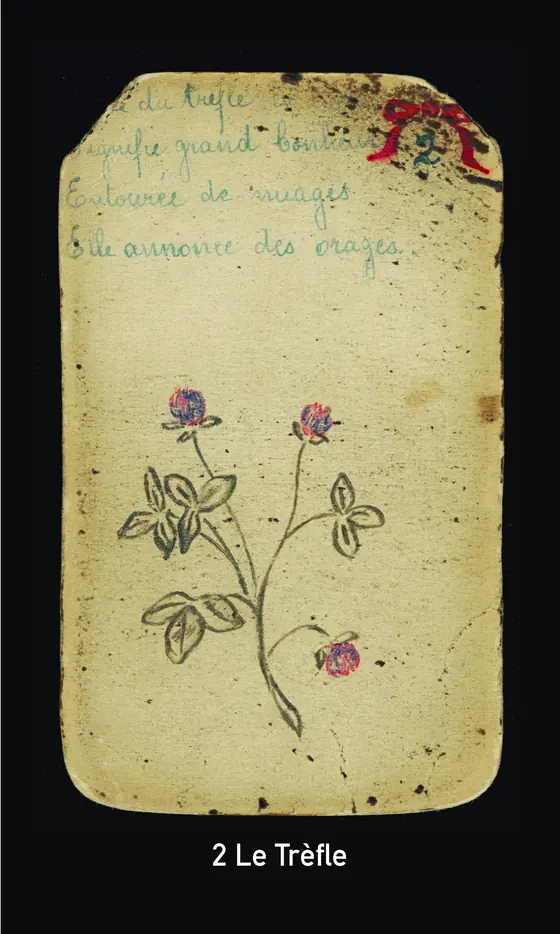 du trefle
signifie grand bonheur
2
Entourée de nuages
Elle annonce des orages.
2 Le Trèfle